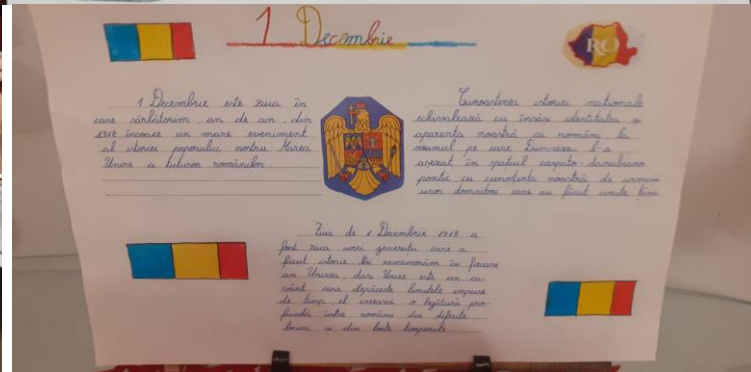 1 Decembrie
RO
1 Decembrie este ziua în
care sărbătorim, an de an, din
1918 încoace un mare eveniment
al istoriei poporului nostru Marea
Unire a tuturor românilor.
Cunoașterea istoriei naționale
echivalează cu însăși identitatea și
aparența noastră ca români la
neamul pe care Dumnezeu l-a
așezat în spațiul carpato-danubiano
pontic cu cunoștența noastră de urmași
unor domnitori care au făcut cinste țării
Ziua de 1 Decembrie 1918 a
fost ziua unei generații care a
făcut istorie. Noi reamintim în fiecare
an Unirea, dar Unire este un cu-
vânt care depășește limitele impuse
de timp, el creează o legătură pro-
fundă între românii din diferite
locuri și din toate timpurile.